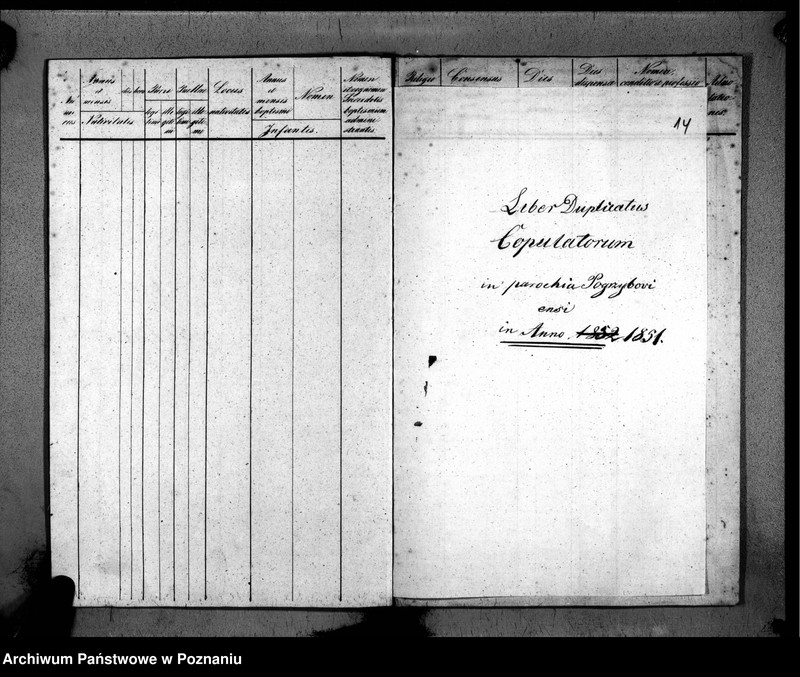 Annus et mensis
dies
hora
Pueri
Puellae
Locus
Annus et mensis baptismi
Nomen
Nomen et cognomen Sacerdotis baptismum administrantis
Nativitatis
nativitatis
Infantis.
Religio
Consensus
Dies
Dies dispensa
Nomen, conditio & professio
14
Liber Duplicatus
Copulatorum
in parochia Pogrzybovi
ensi
in Anno 1852 1851.
Archiwum Państwowe w Poznaniu